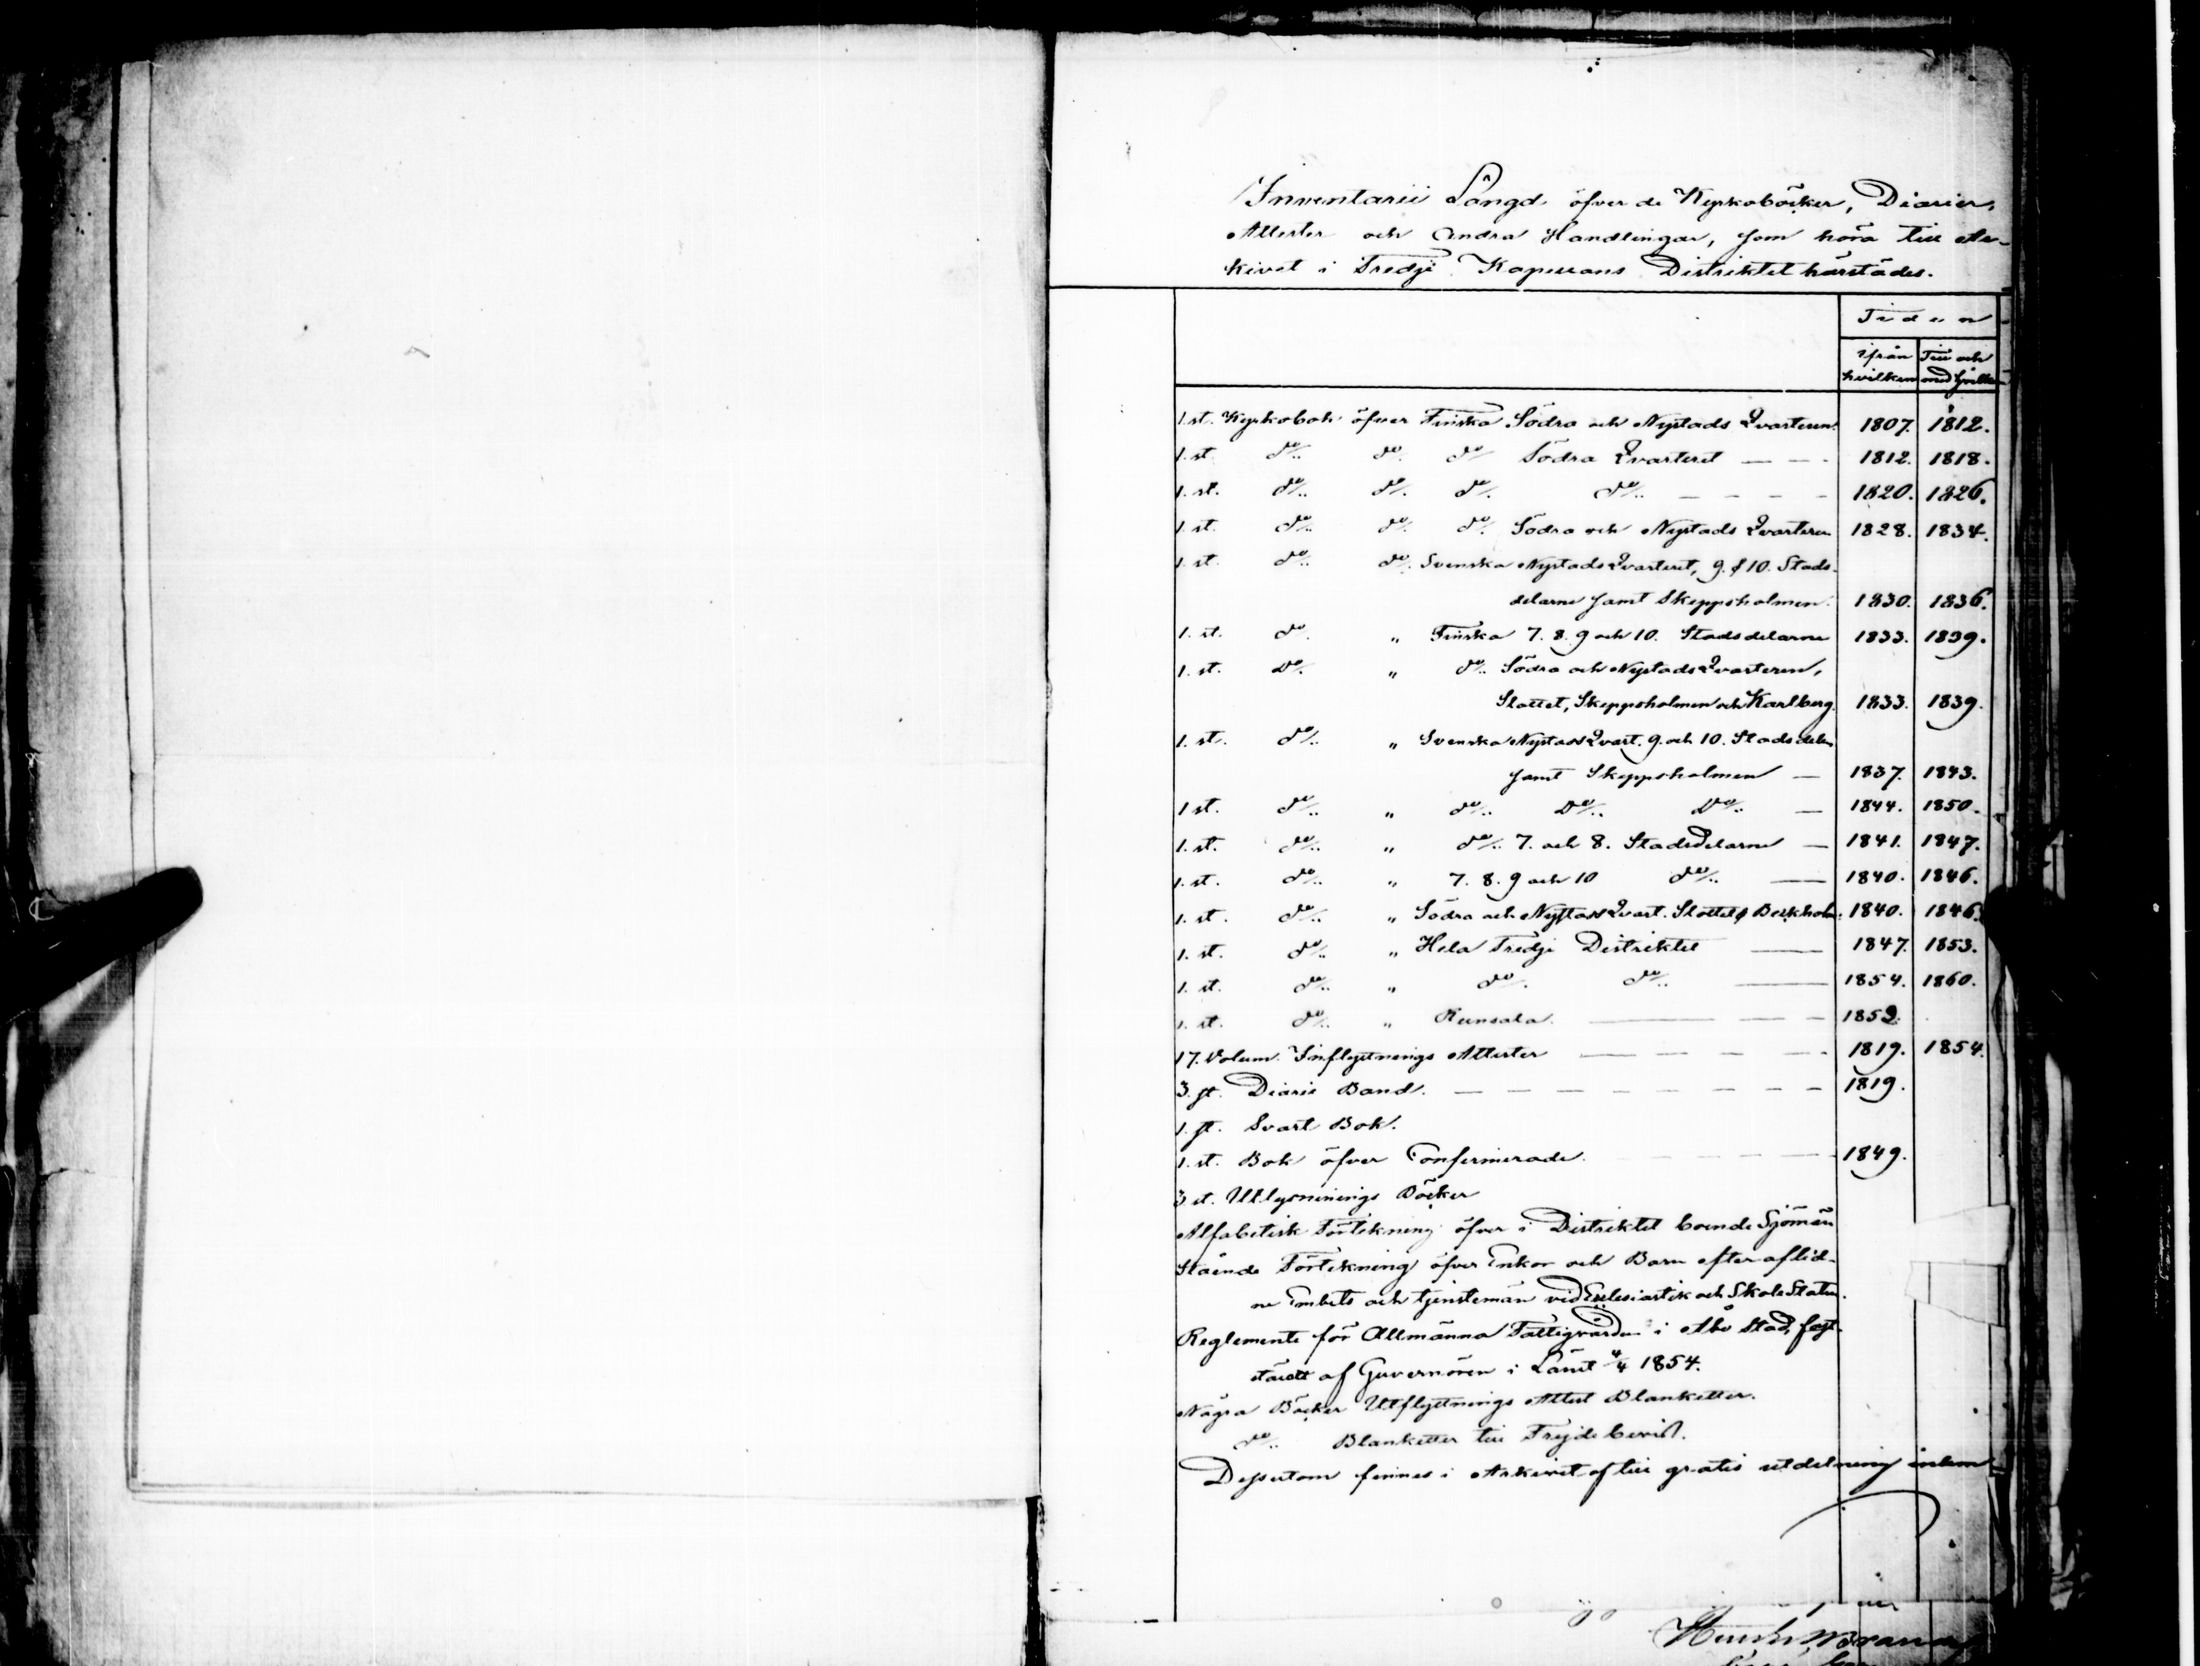 Inventarii Längd öfver de Kyrkoböcker, Diarier,
Attester och Andra Handlingar, som höra till Ar-
kivet i Tredje Kapellans Distriktet härstädes.
Tiden
ifrån hvilken
Till och med hvilken
1 st. Kyrkobok öfver Finska Södra och Nystads Qvarteren. 1807. 1812.
1 st. do. do. do. Södra Qvarteret — — - 1812. 1818.
1. st. do. do. do. do. — — — — 1820. 1826.
1 st. do. do. do. Södra och Nystads Qvarteren 1828. 1834.
1. st. do. do. Svenska Nystads Qvarteret, 9. & 10. Stads-
delarne samt Skeppsholmen. 1830. 1836.
1. st. do. „ Finska 7. 8. 9 och 10. Stadsdelarne 1833. 1839.
1. st. Do. „ do. Södra och Nystads Qvarteren,
Slottet, Skeppsholmen och Karlberg. 1833. 1839.
1. st. do. „ Svenska Nystads Qvart. 9. och 10. Stadsdelen
samt Skeppsholmen — 1837. 1843.
1 st. do. „ do. Do. Do. — 1844. 1850.
1. st. do. „ do. 7. och 8. Stadsdelarne — 1841. 1847.
1. st. do. „ 7. 8. 9 och 10 do. — 1840. 1846.
1. st. do. „ Södra och Nystads Qvart. Slottet & Beckholm. 1840. 1846.
1. st. do. „ Hela Tredje Distriktet — 1847. 1853.
1. st. do. „ do. do. — 1854. 1860.
1. st. do. „ Runsala. — — — 1859.
17. Volum. Inflyttnings Attester — — — — - 1819. 1854.
3. st. Diarie Band. — — — — — — — 1819.
1. st. Svart Bok.
1. st. Bok öfver Confirmerade. — — — — 1849.
3 st. Utlysnings Böcker
Alfabetisk Förtekning öfver i Distriktet boende Sjömän
Stående Förtekning öfver Enkor och Barn efter aflid-
ne Embets och tjenstemän vid Ecclesiastik och Skole Staten.
Reglemente för Allmänna Fattigvården i Åbo Stad, fast-
stäldt af Guvernören i Länet 4/4 1854.
Några Böcker Utflyttnings Attest Blanketter.
do. Blanketter till Frejdebevis.
Dessutom finnes i Arkivet af till gratis utdelning inkom-